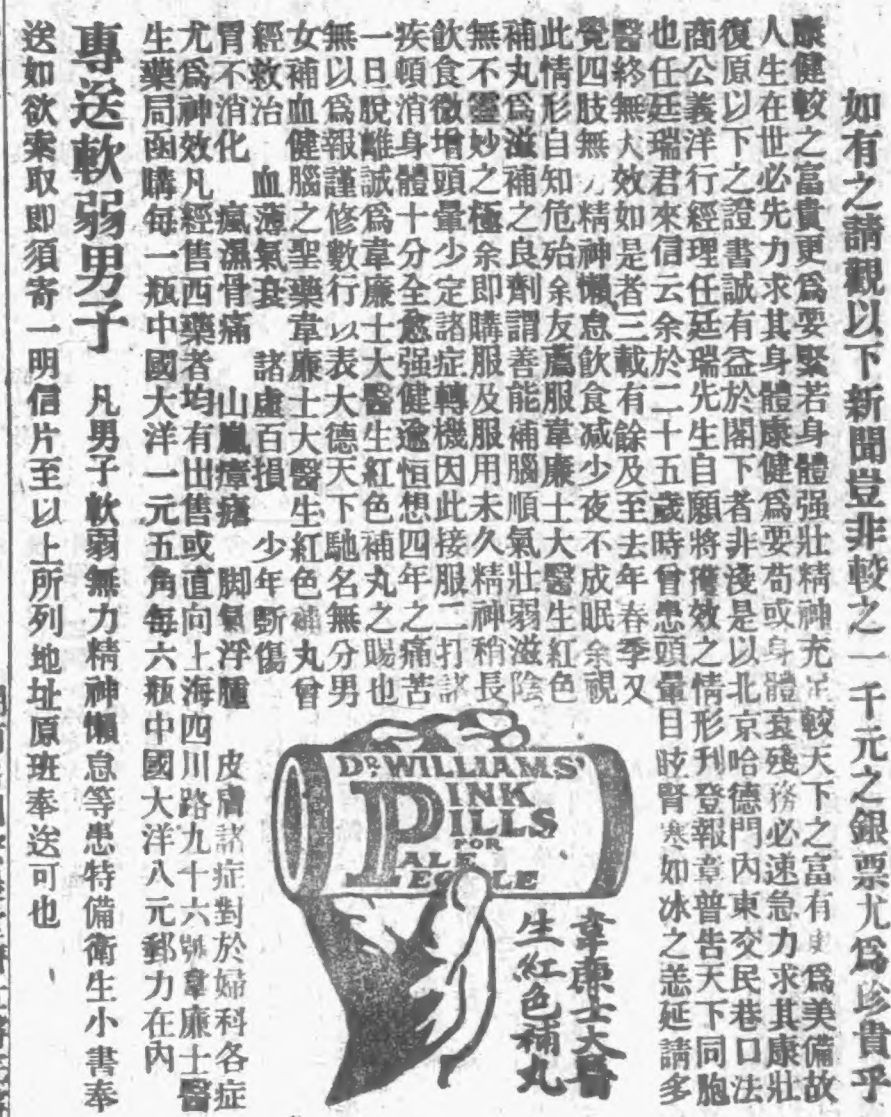 如有之請觀以下新聞豈非較之一千元之銀票尤爲珍貴乎
康健較之富貴更爲要緊若身體强壯精神充足較天下之富有更爲美備故
人生在世必先力求其身體康健爲要苟或身體衰殘務必速急力求其康壯
復原以下之證書誠有益於閣下者非淺是以北京哈德門內東交民巷口法
商公義洋行經理任廷瑞先生自願將獲效之情形刊登報章普告天下同胞
也任廷瑞君來信云余於二十五歲時曾患頭暈目眩腎寒如冰之恙延請多
醫終無大效如是者三載有餘及至去年春季又
覺四肢無力精神懶怠飲食減少夜不成眠余視
此情形自知危殆余友薦服韋廉士大醫生紅色
補丸爲滋補之良劑謂善能補腦順氣壯弱滋陰
無不靈妙之極余即購服及服用未久精神稍長
飲食微增頭暈少定諸症轉機因此接服二打諸
疾頓消身體十分全愈强健逾恒想四年之痛苦
一旦脫離誠爲韋廉士大醫生紅色補丸之賜也
無以爲報謹修數行以表大德天下馳名無分男
女補血健腦之聖藥韋廉士大醫生紅色補丸曾
經救治 血薄氣衰 諸虛百損 少年斲傷
胃不消化 瘋濕骨痛 山嵐瘴瘧 脚氣浮腫 皮膚諸症對於婦科各症
尤爲神效凡經售西藥者均有出售或直向上海四川路九十六號韋廉士醫
生藥局函購每一瓶中國大洋一元五角每六瓶中國大洋八元郵力在內
專送軟弱男子 凡男子軟弱無力精神懶怠等患特備衛生小書奉
送如欲索取即須寄一明信片至以上所列地址原班奉送可也
DR. WILLIAMS'
PINK
PILLS
FOR
PALE
PEOPLE
韋廉士大醫
生紅色補丸